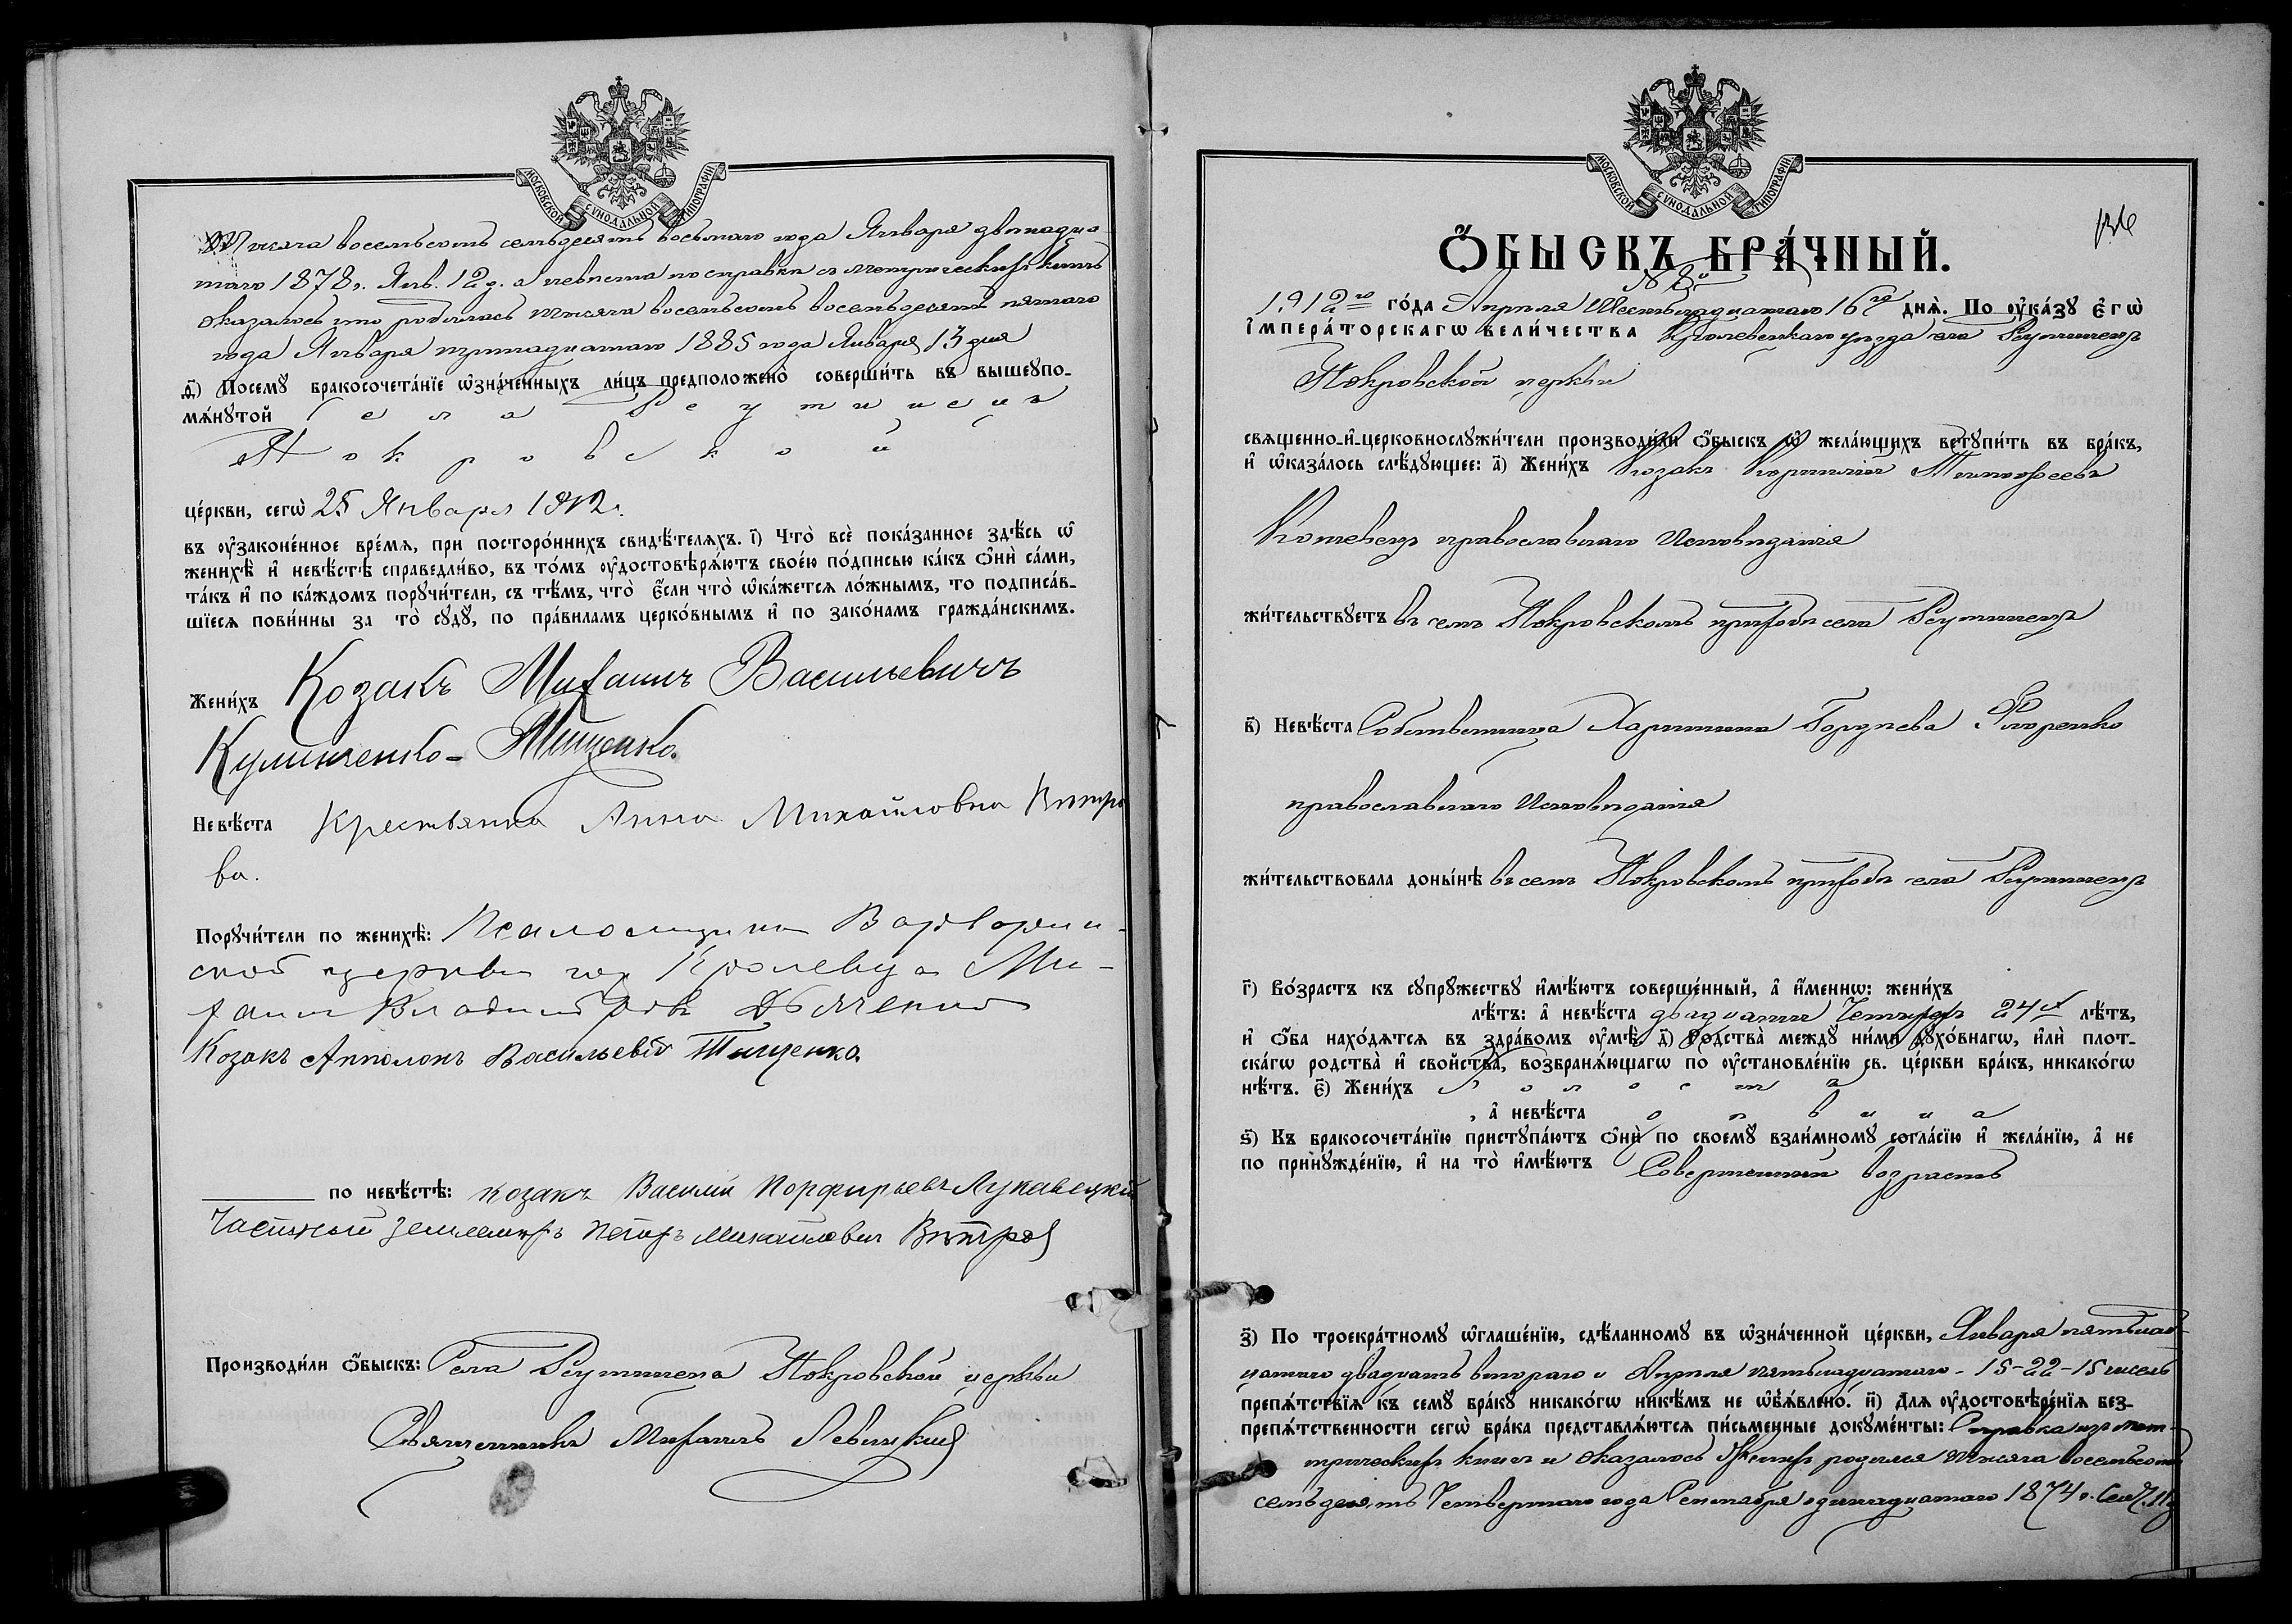 МОСКОВСКОЙ СУНОДАЛЬНОЙ ТИПОГРАФІИ
Тысяча восемьсотъ семьдесятъ восьмого года Января двѣнадца-
таго 1878 г. Янв. 12 д. а невѣста по справкѣ съ метрическихъ книгъ
оказалось что родилась тысяча восемьсотъ восемьдесятъ пятаго
года Января тринадцатаго 1885 года Января 13 дня
д҃) Посемꙋ бракосочета́нїе ѡ҆зна́ченныхъ ли́цъ предположено̀ соверши́ть въ вышеꙋпо-
мѧ́нꙋтой Села Реутинецъ
Покровской
це́ркви, сегѡ̀ 25 Января 1912 г.
въ ᲂу҆законе́нное вре́мѧ, при посторо́ннихъ свидѣ́телѧхъ. і҃) Что̀ всѐ пока́занное здѣ́сь ѡ҆
женихѣ̀ и҆ невѣ́стѣ справедли́во, въ то́мъ ᲂу҆достовѣрѧ́ютъ свое́ю по́дписью ка́къ ѻ҆нѝ са́ми,
та́къ и҆ по ка́ждомъ порꙋчи́тели, съ тѣ́мъ, что̀ є҆́сли что̀ ѡ҆ка́жетсѧ ло́жнымъ, то подписа́в-
шїесѧ пови́нны за то̀ сꙋдꙋ̀, по пра́виламъ церко́внымъ и҆ по зако́намъ гражда́нскимъ.
Жени́хъ Козакъ Михаилъ Васильевичъ
Кулинченко-Тищенко.
Невѣ́ста Крестьянка Анна Михайловна Вѣтро
ва.
Порꙋчи́тели по женихѣ̀: Псаломщикъ Варварин-
ской церкви гор Кролевца Ми-
хаил Владиміровъ Дьяченко
Козакъ Апполонъ Васильевій Тищенко.
по невѣ́стѣ: козакъ Василій Порфирьевъ Лукавецкій
Частный землемѣръ Петръ Михайлович Вѣтров
Производи́ли ѻ҆́быскъ: Села Реутинецъ Покровской церкви
Священникъ Михаилъ Левицкій
МОСКОВСКОЙ СУНОДАЛЬНОЙ ТИПОГРАФІИ
Ѻ҆́БЫСКЪ БРА́ЧНЫЙ.
№ 8й
1912го го́да Апрѣля Шестнадцатаго 16го днѧ̀. По ᲂу҆ка́зꙋ є҆гѡ̀
і҆мпера́торскагѡ вели́чества Кролевецкаго уѣзда села Реутинецъ
Покровской церкви
свѧще́нно-и҆-церковнослꙋжи́тели производи́ли ѻ҆́быскъ ѡ҆ жела́ющихъ встꙋпи́ть въ бра́къ,
и҆ ѡ҆каза́лось слѣ́дꙋющее: а҃) Жени́хъ Козакъ Корнилій Тимофеевъ
Котевецъ православнаго исповѣданія
жи́тельствꙋетъ въ семъ Покровскомъ приходѣ села Реутинецъ
в҃) Невѣ́ста Собственница Харитина Гордѣева Фторенко
православнаго исповѣданія
жи́тельствовала доны́нѣ въ семъ Покровскомъ приходѣ села Реутинецъ
г҃) Во́зрастъ къ сꙋпрꙋ́жествꙋ и҆мѣ́ютъ соверше́нный, а҆ и҆́менно: жени́хъ
лѣ́тъ: а҆ невѣ́ста двадцати Четырехъ 24х лѣ́тъ,
и҆ ѻ҆́ба нахо́дѧтсѧ въ здра́вомъ ᲂу҆мѣ̀. д҃) Родства̀ междꙋ ни́ми дꙋхо́внагѡ, и҆лѝ плот-
ска́гѡ родства̀ и҆ свойства̀, возбранѧ́ющагѡ по ᲂу҆становле́нїю св. це́ркви бра́къ, никако́гѡ
нѣ́тъ. є҃) Жени́хъ холостъ
, а҆ невѣ́ста дѣвица
ѕ҃) Къ бракосочета́нїю пристꙋпа́ютъ ѻ҆нѝ по своемꙋ̀ взаи́мномꙋ согла́сїю и҆ жела́нїю, а҆ не
по принꙋжде́нїю, и҆ на то̀ и҆мѣ́ютъ Совершенный возрастъ
з҃) По троекра́тномꙋ ѡ҆глаше́нїю, сдѣ́ланномꙋ въ ѡ҆зна́ченной це́ркви, Января пятьнад-
цатаго двадцать второго и Апрѣля пятьнадцатаго - 15-22-15 чиселъ
препѧ́тствїѧ къ семꙋ̀ бра́кꙋ никако́гѡ никѣ́мъ не ѡ҆б̾ѧ́влено. и҃) Длѧ ᲂу҆достовѣре́нїѧ без-
препѧ́тственности сегѡ̀ бра́ка представлѧ́ютсѧ пи́сьменные докꙋме́нты: Справка изъ мет-
рическихъ книгъ и оказалось Женихъ родился Тысяча восемьсотъ
семьдесятъ Четвертаго года Сентября одинадцатаго 1874 г. Сент. 11